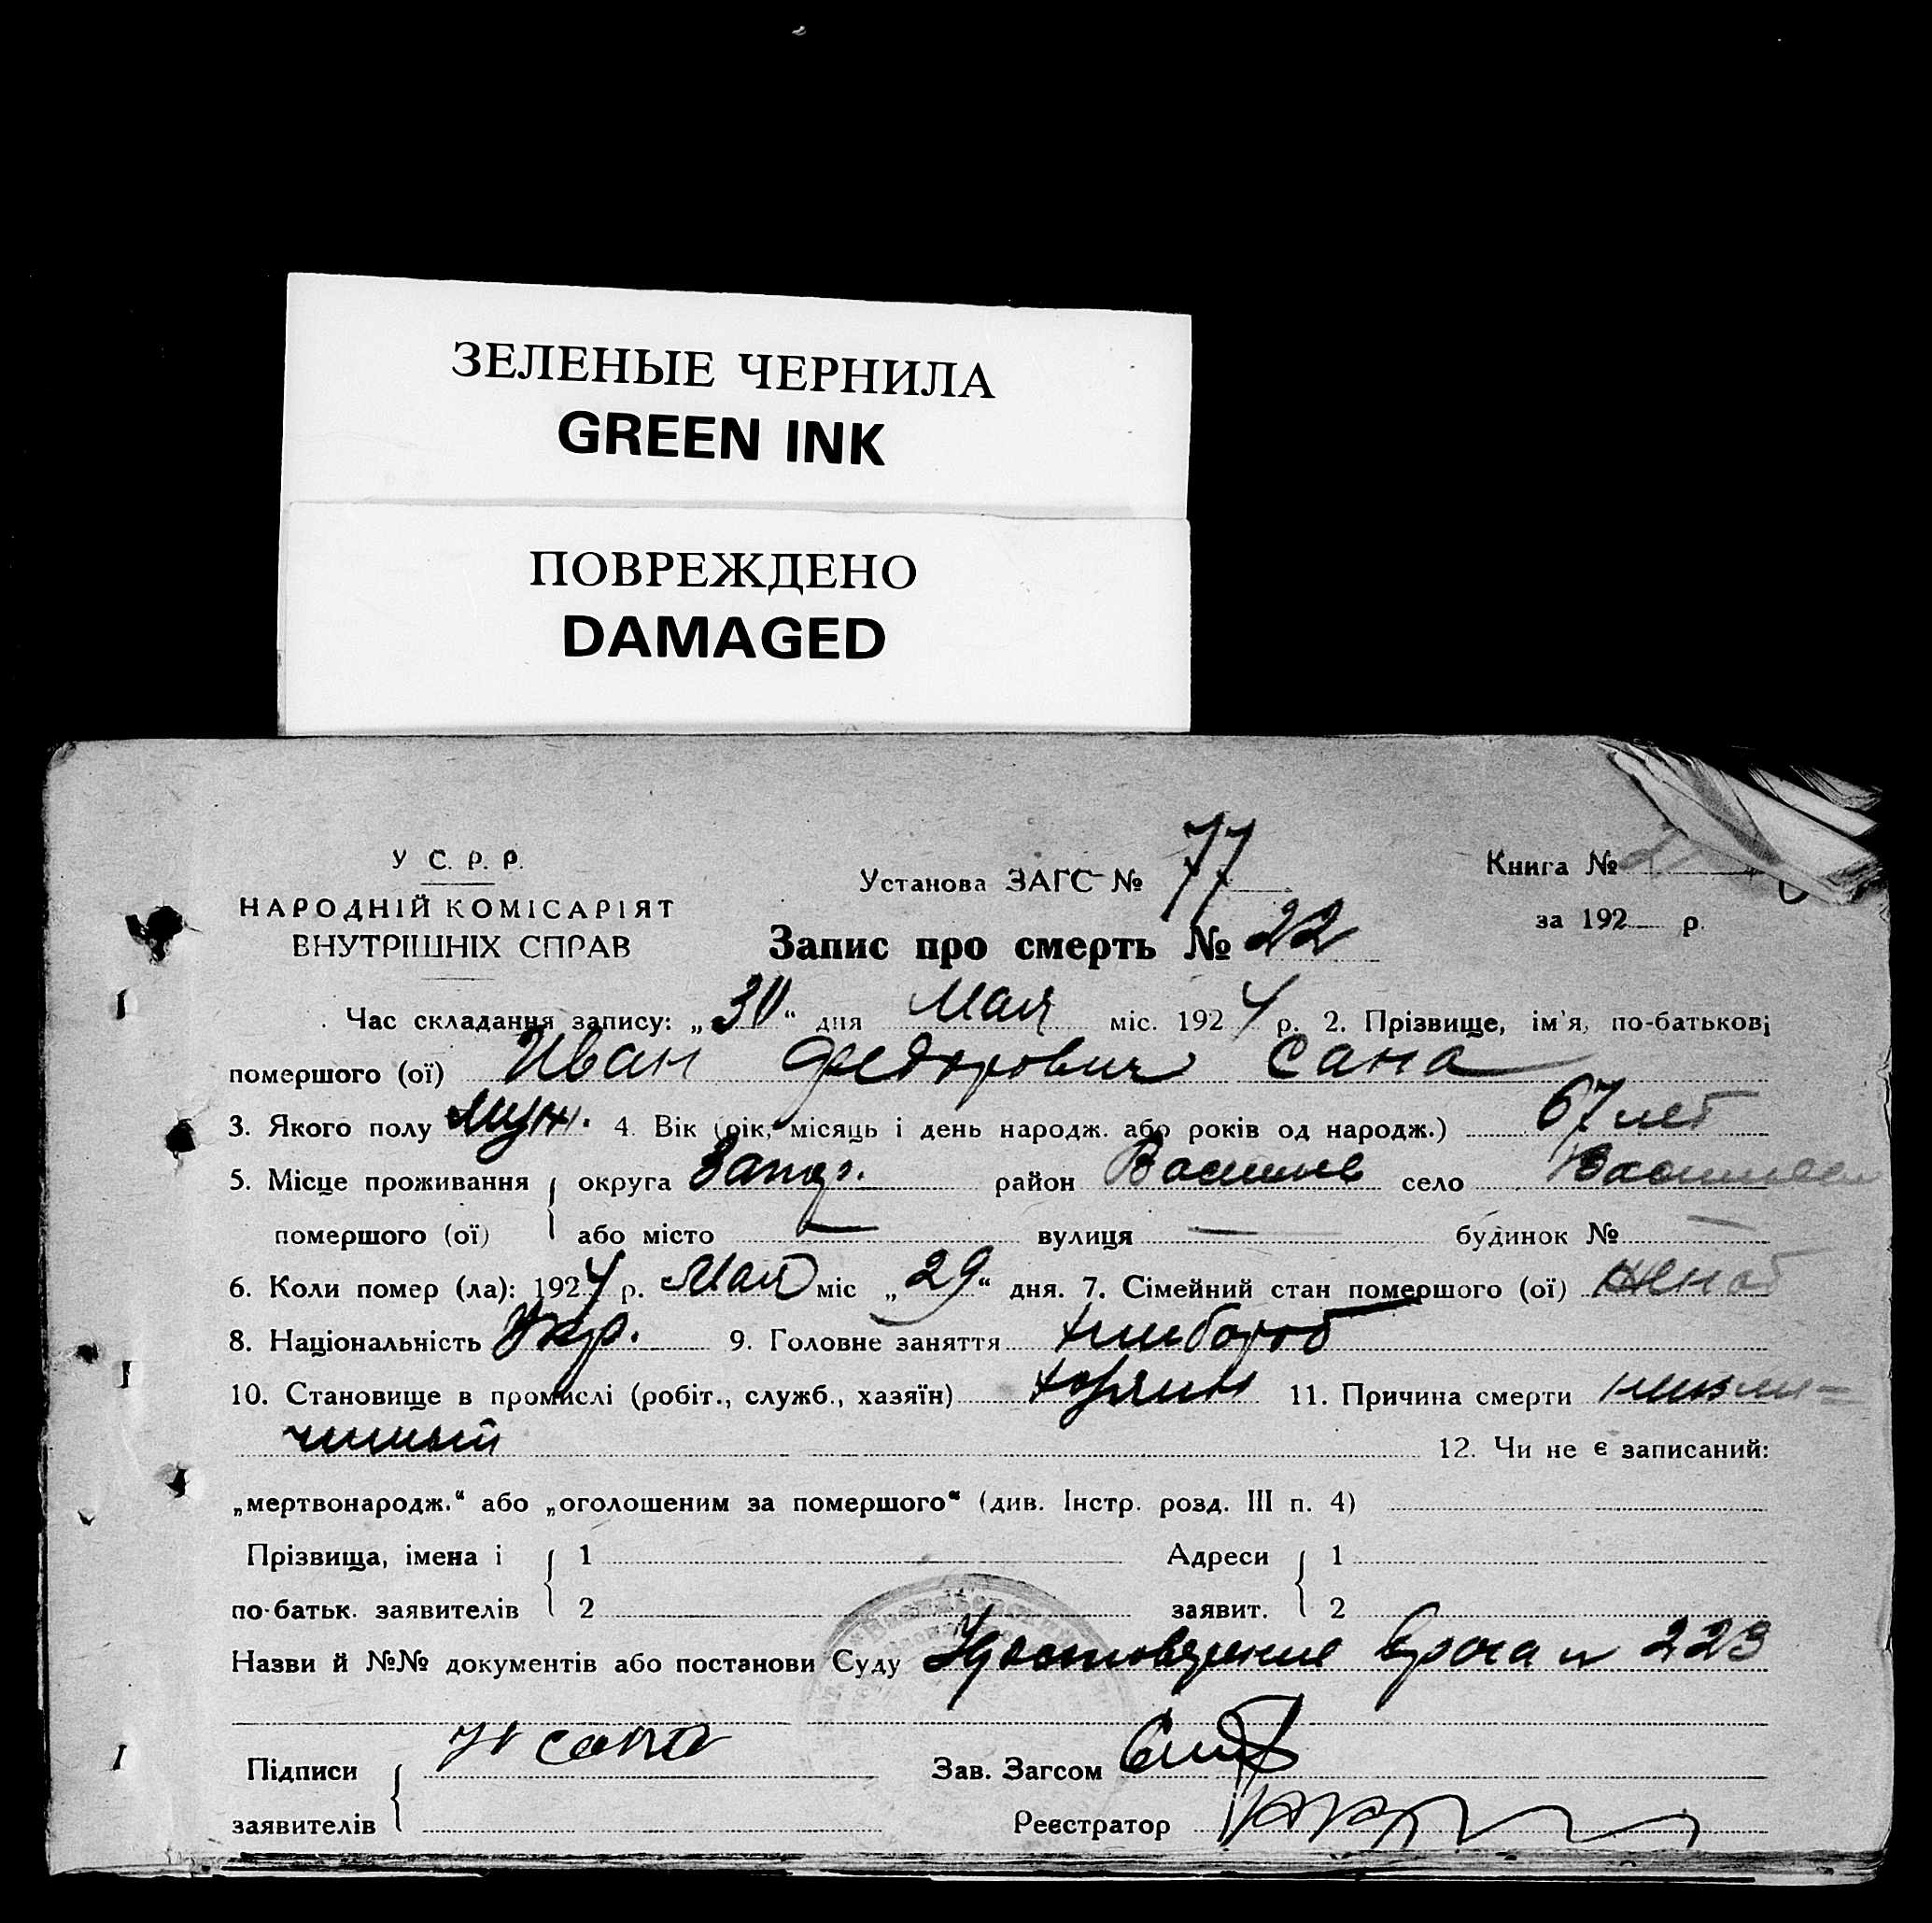 ЗЕЛЕНЫЕ ЧЕРНИЛА
GREEN INK
ПОВРЕЖДЕНО
DAMAGED
У С. Р. Р.
НАРОДНІЙ КОМІСАРІЯТ
ВНУТРІШНІХ СПРАВ
Установа ЗАГС № 77
Книга №
за 192 р.
Запис про смерть № 22
Час складання запису: „30“ дня Мая міс. 1924 р. 2. Прізвище, ім'я, по-батькові
помершого (ої) Иван Федорович Сана
3. Якого полу муж. 4. Вік (рік, місяць і день народж. або років од народж.) 67 лет
5. Місце проживання округа Запор. район Васильев село Васильев
помершого (ої) або місто — вулиця — будинок № —
6. Коли помер (ла): 1924 р. Мая міс „29“ дня. 7. Сімейний стан помершого (ої) женат
8. Національність Укр. 9. Головне заняття хлебороб
10. Становище в промислі (робіт., служб., хазяїн) 11. Причина смерти
12. Чи не є записаний:
„мертвонародж.“ або „оголошеним за помершого“ (див. Інстр. розд. III п. 4)
Прізвища, імена і 1 Адреси 1
по-батьк. заявителів 2 заявит. 2
Назви й №№ документів або постанови Суду Удостоверение врача № 223
Підписи Сана Зав. Загсом
заявителів Реєстратор